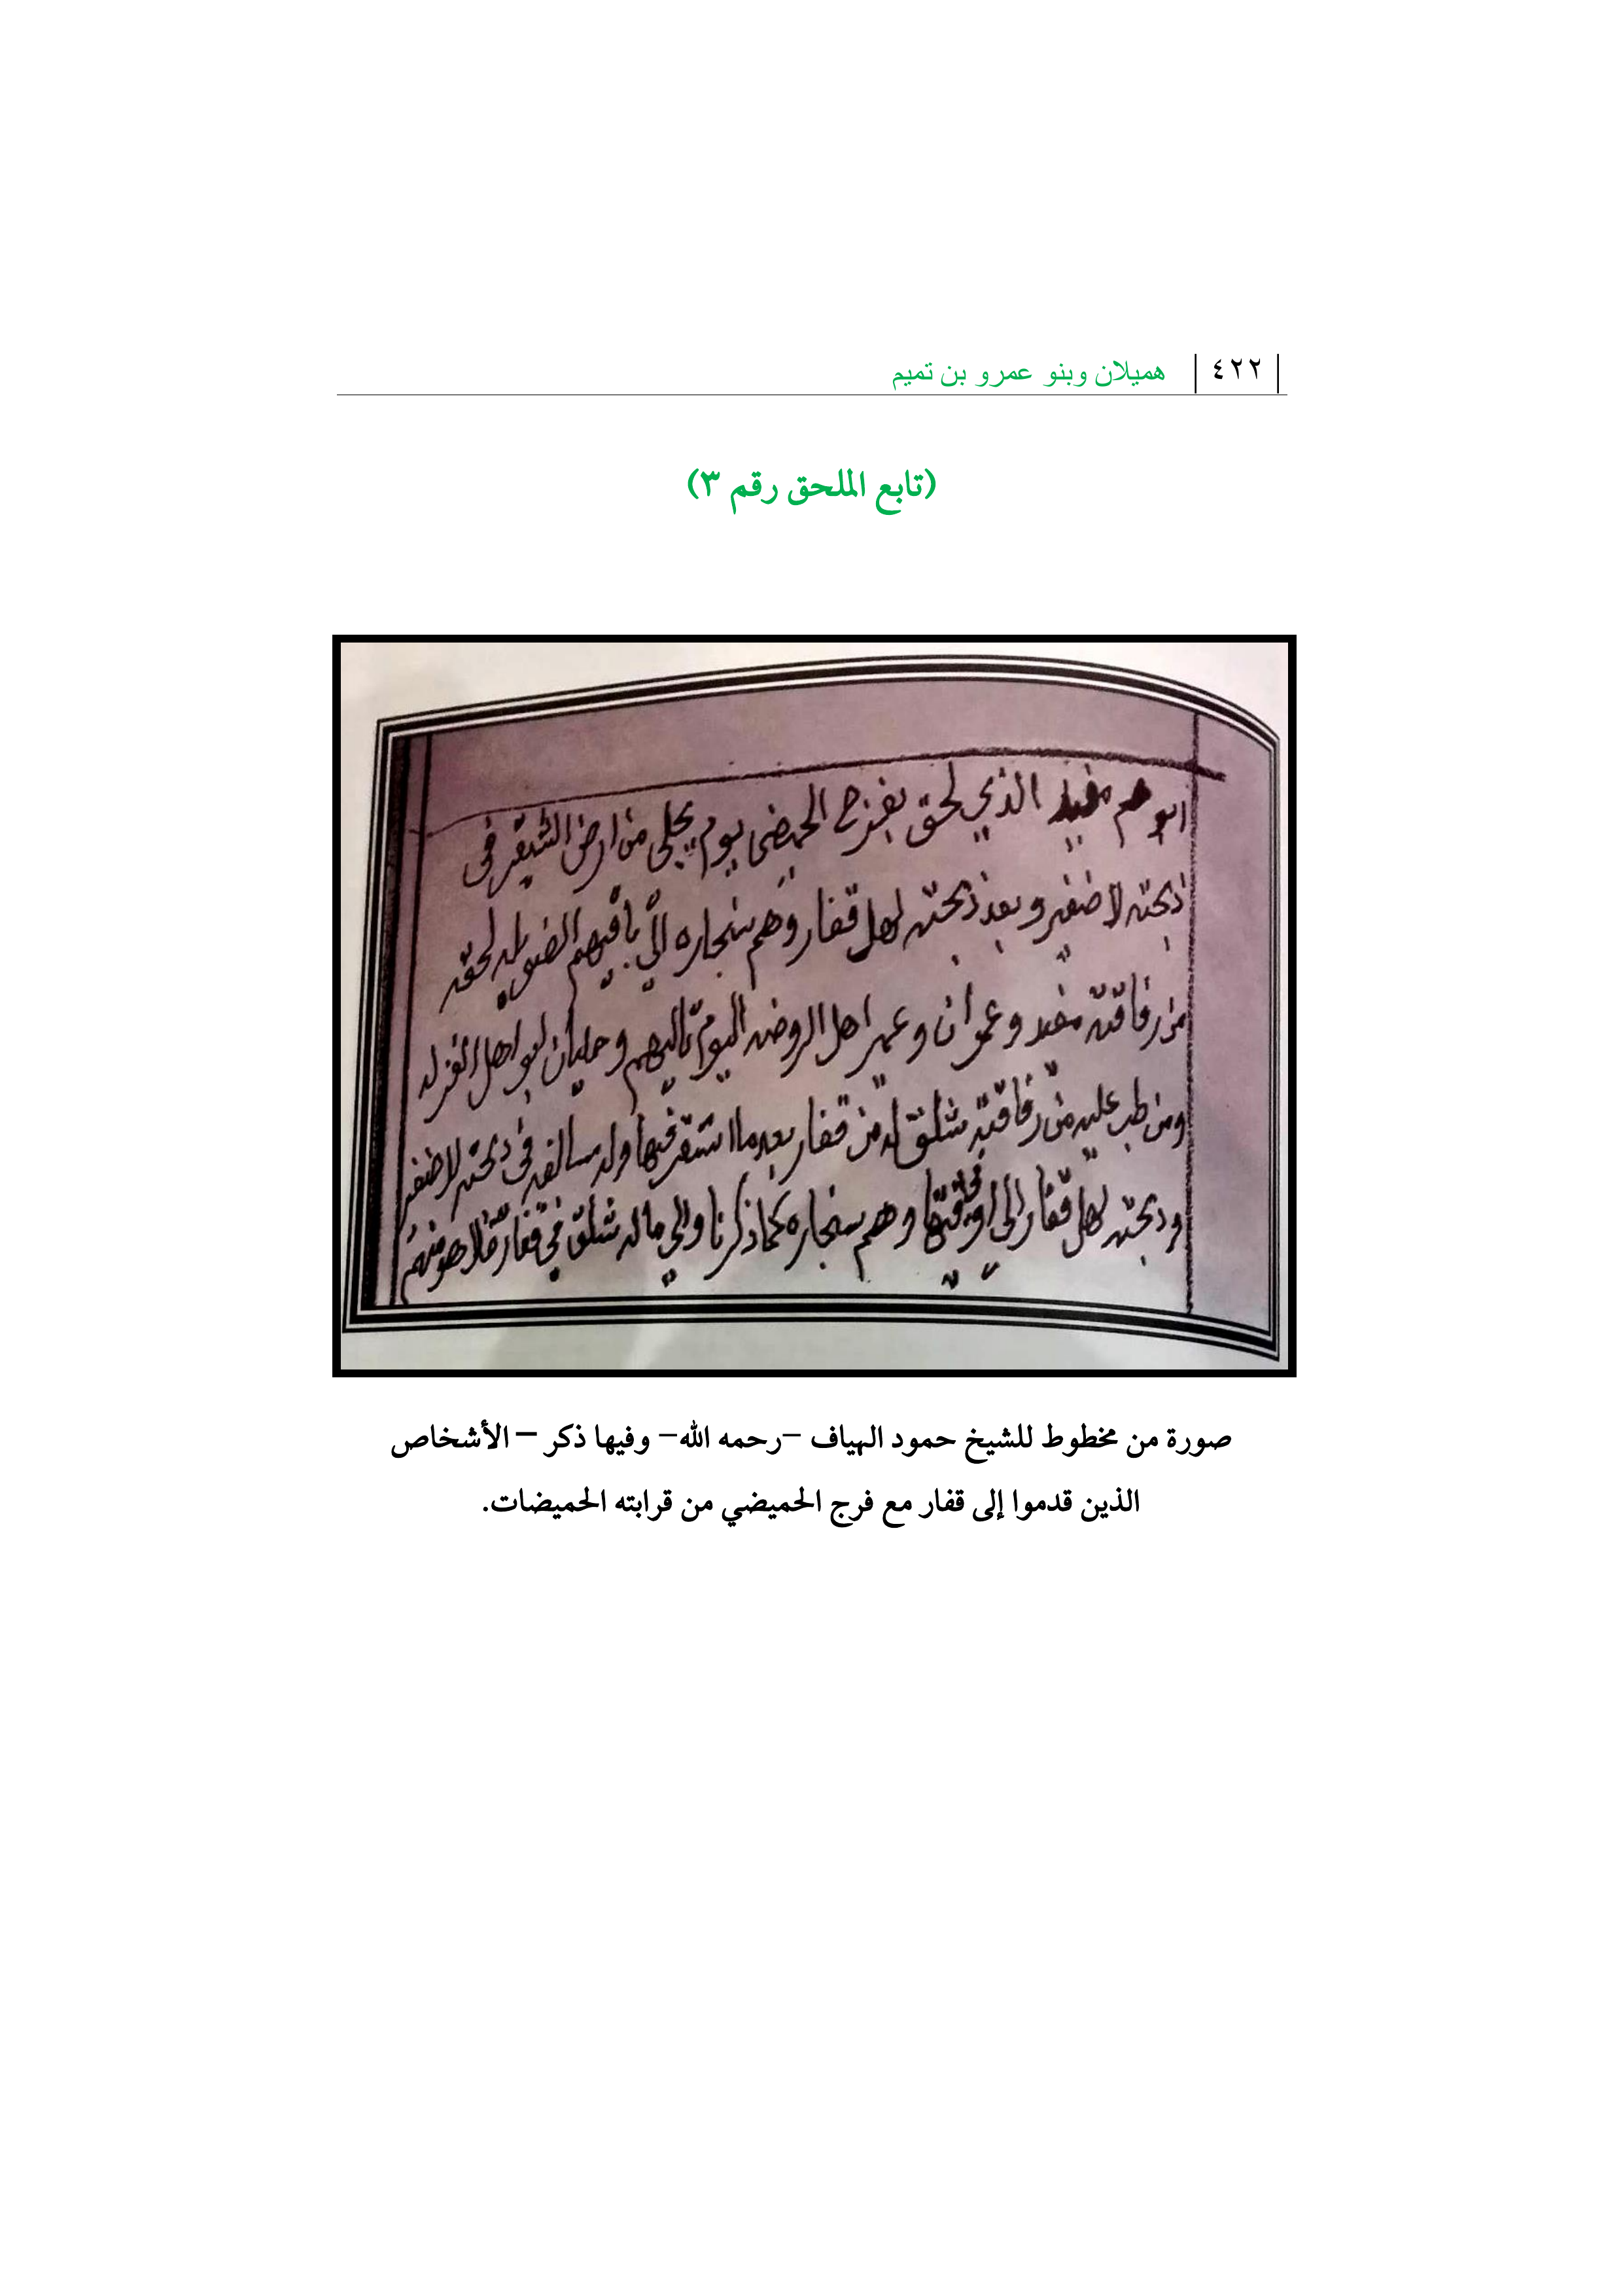 ٤٢٢ هميلان وبنو عمرو بن تميم
(تابع الملحق رقم ٣)
ابوهم مفيد الذي لحق بفرج الحميضي يوم يجلي من ارض الشقير في
ذبحته لاضفير وبعد ذبحته لهل قفار وهم سنجاره الي باقيهم الضويله لحقه
من رفاقته مفيد وعمران وعمير اهل الروضه اليوم تاليهم وحليان ابو اهل الغزله
ومن طب عليه من رفاقته شلق له من قفار بعد ما استقر فيها وله سالفه في ذبحته لاضفير
وذبحته لهل قفار الي وهم سنجاره كما ذكرنا والي ماله شلق في قفار فلا هو منهم
صورة من مخطوط للشيخ حمود الهياف –رحمه الله– وفيها ذكر – الأشخاص
الذين قدموا إلى قفار مع فرج الحميضي من قرابته الحميضات.